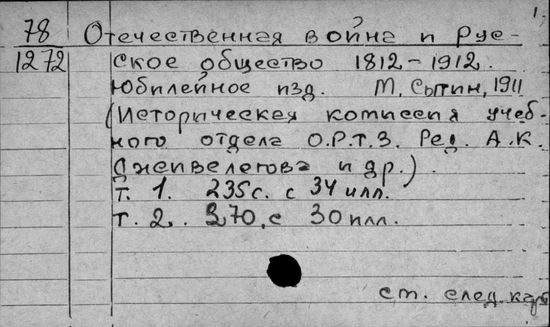 1.
78 Отечественная война и Рус-
1272 ское общество 1812 - 1912.
Юбилейное изд. М. Сытин, 1911
(Историческая комиссия учеб-
ного отдела О.Р.Т.З. Ред. А.К.
Дживелегова и др.)
т. 1. 235 с. с 34 илл.
т. 2. 270, с 30 илл.
ст. след. карт